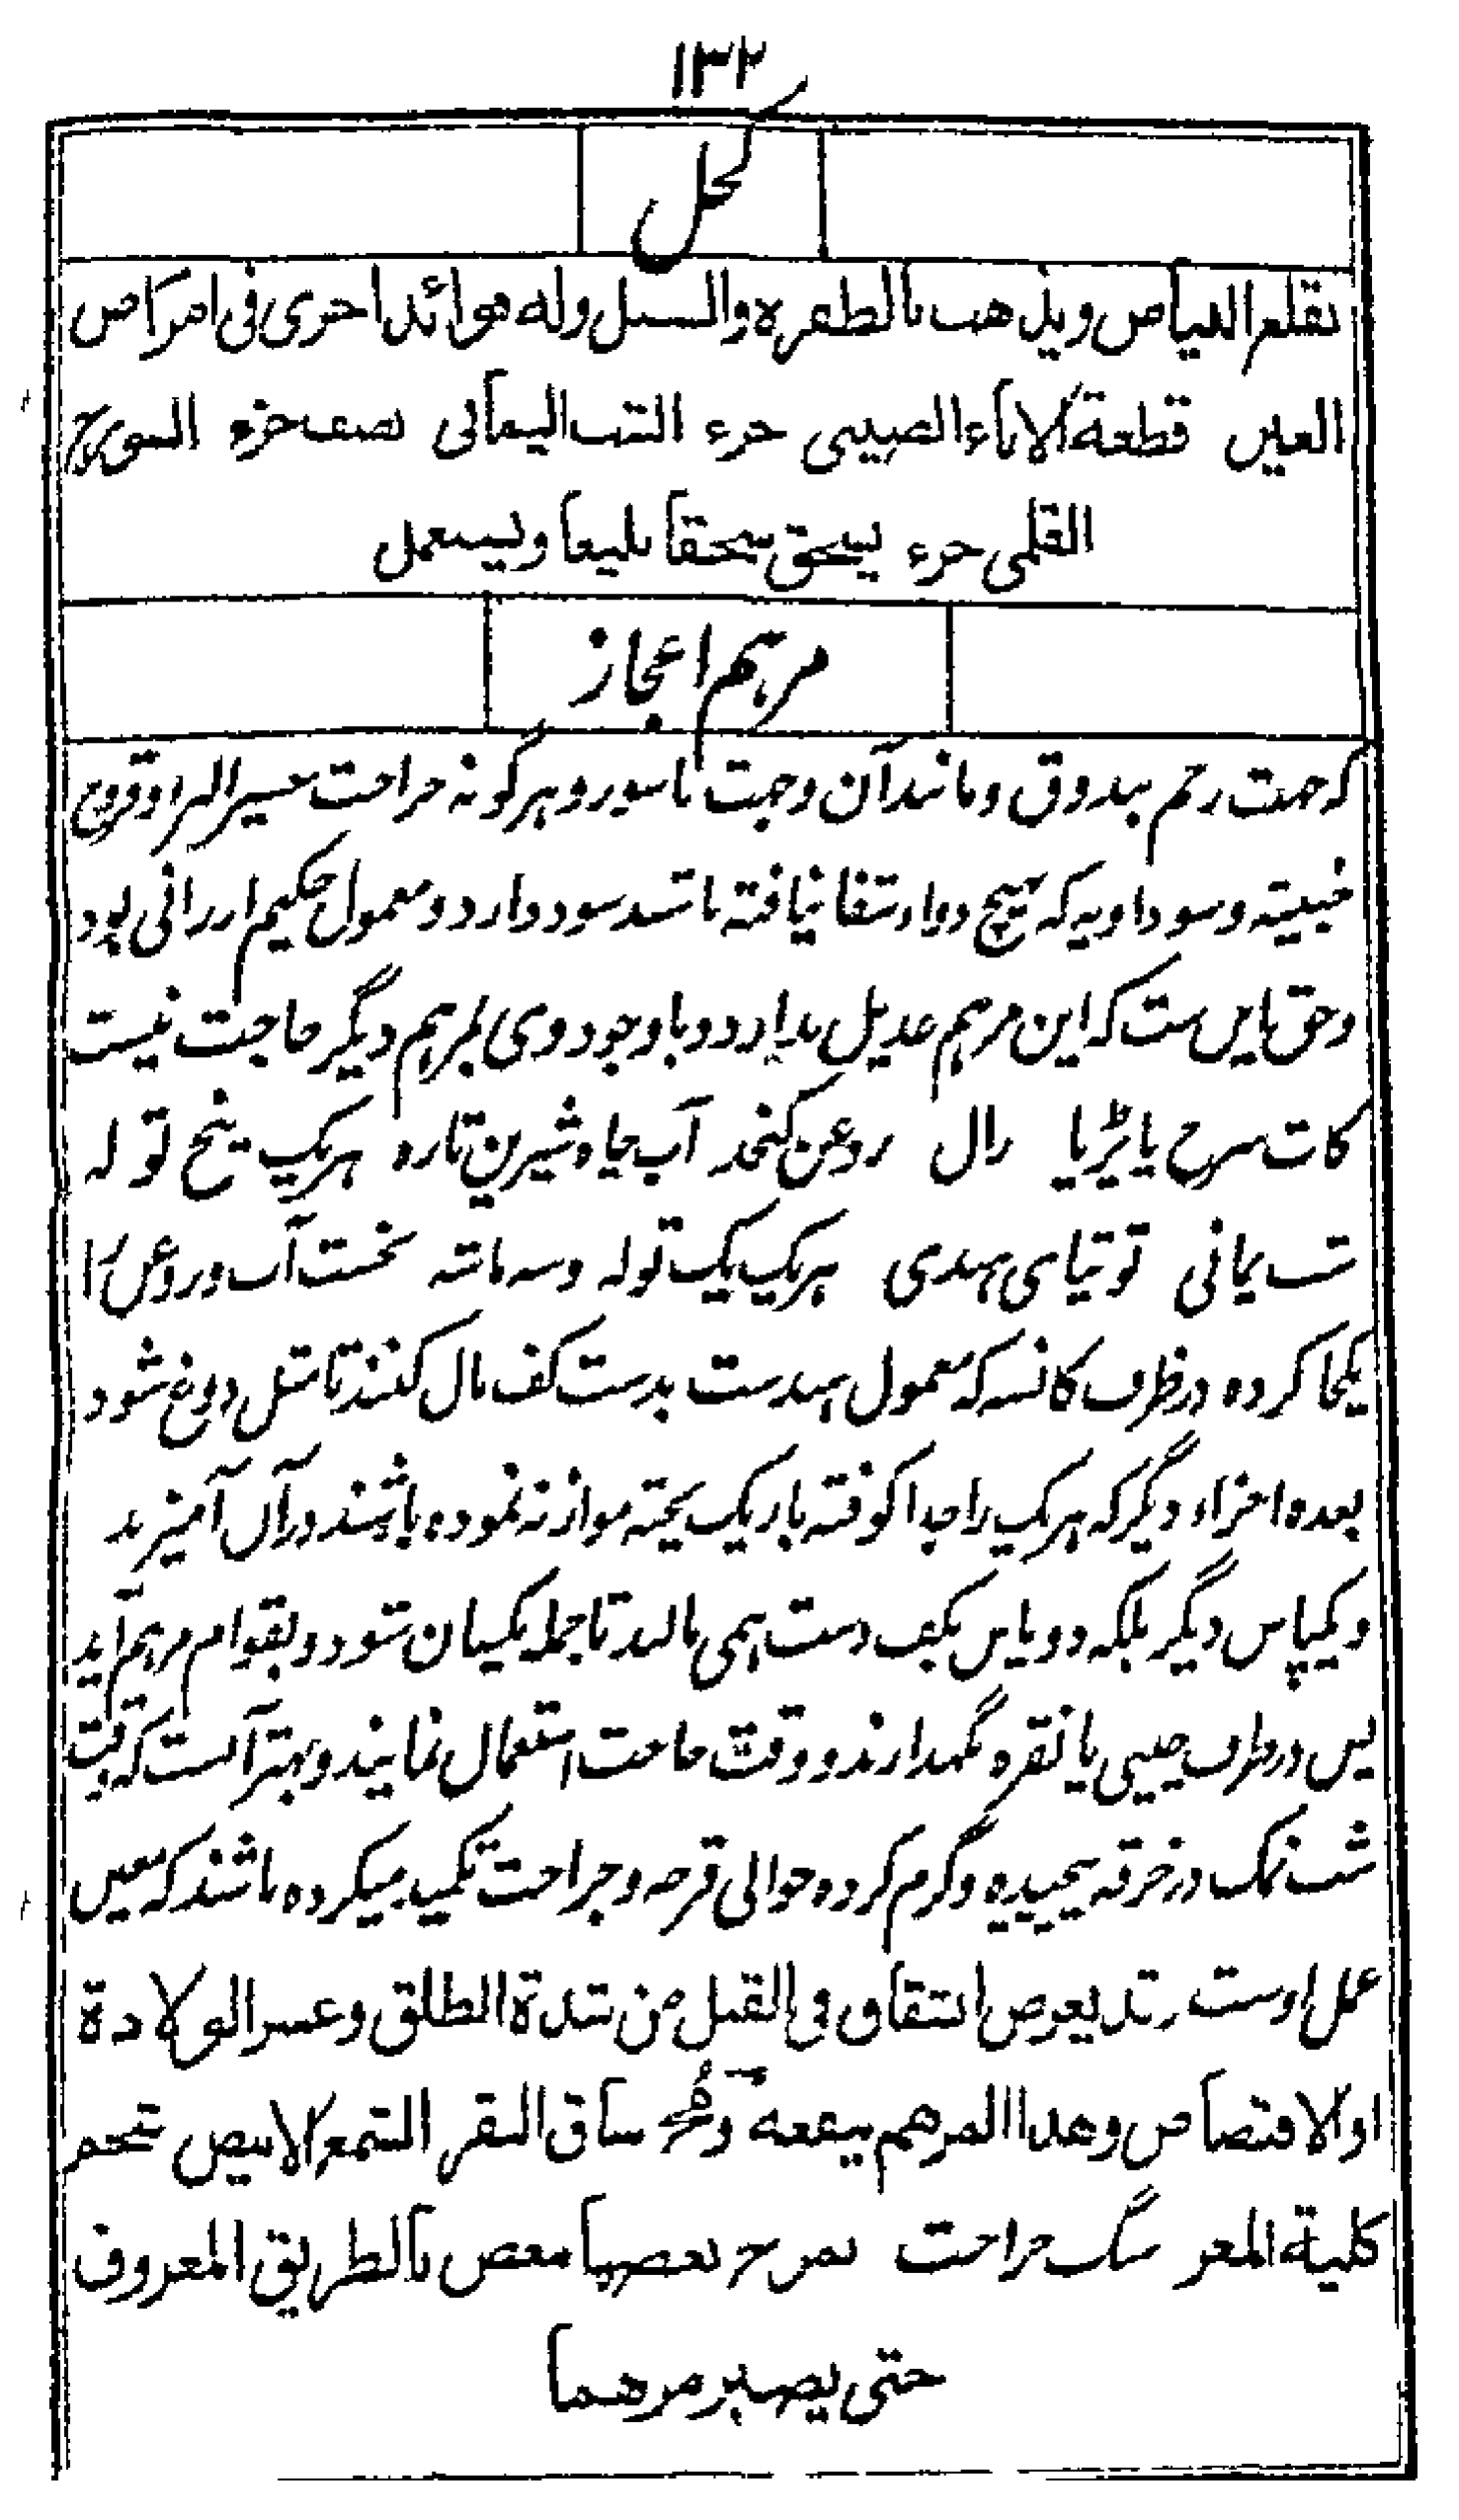 ۱۳۲
کحل
تقلع البیاض ویذهب بالظفرة والسبل وله فوائد اخری فی امراض
العین قطعة الاناء الصینی جزء الشب الیمانی نصف جزء الشورج
القلمی جزء یسحق سحقا بلیغا ویستعمل
مرہم اعجاز
کہ جہت زخم بندوق و مانند آن و جہت ناسور و ہرگونہ جراحت عسیر البرء و قروح
خبیثہ و سوداویہ کہ ہیچ دوا، شفا نیافتہ باشد سود دارد و معمول حکیم ارزانی بود
و حق این ست کہ این مرہم عدیل ندارد و با وجود وی بمرہم دیگر حاجت نیست
کات سرخ پاپڑیا رال روغن کنجد آب چاہ شیرین تازہ ہریک پنج تولہ
شب یمانی توتیای ہندی ہریک یک تولہ و سہ ماشہ نخست آب و روغن را
یکجا کردہ در ظرف کانسہ کہ معمول ہندست بدست کف مال کنند تا مثل دوغ شود
بعدہ اجزاء دیگر کہ ہریک را جدا کوفتہ باریک بیختہ موازنہ نمودہ باشند در آن آمیزند
و یکپاس دیگر بلکہ دو پاس بکف دست ہمی مالند تا جملہ یکسان شود و بقوام مرہم آید
پس در ظرف چینی یا نقرہ نگہدارند و وقت حاجت استعمال نمایند و بہتر آنست کہ وقت
شب نمک در خرقہ پیچیدہ و گرم کردہ حوالی قرحہ و جراحت تکمید میکردہ باشند کہ معین
عمل اوست قد یعرض انشقاق فی القبل من شدة الطلق وعسر الولادة
او الافتضاض وهذا المرهم ینفعه مخ ساق البقر الشمع الابیض شحم
کلیة المعز سنگ جراحت یمزج بعضها ببعض بالطریق المعروف
حتی یصیر مرهما